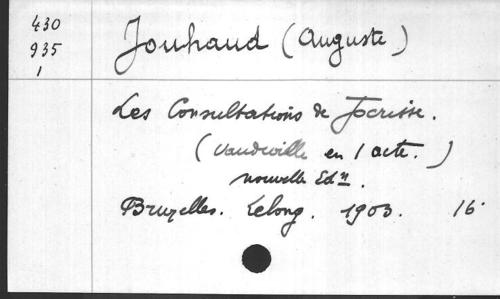 430
935
1
Jouhaud (Auguste)
Les Consultations de Jocrisse.
(Vaudeville en 1 acte.)
nouvelle Edn.
Bruxelles. Lelong. 1903. 16